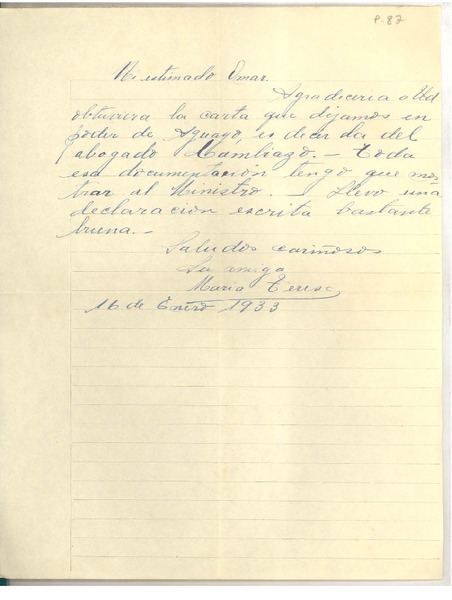 P. 87
Mi estimado Omar.
Agradeceria a Ud
obtuviera la carta que dejamos en
poder de Aguayo, es decir la del
abogado Cambiazo. - Toda
esa documentación tengo que mos
trar al Ministro. - Llevo una
declaración escrita bastante
buena. -
Saludos cariñosos
Su amiga
Maria Teresa
16 de Enero 1933